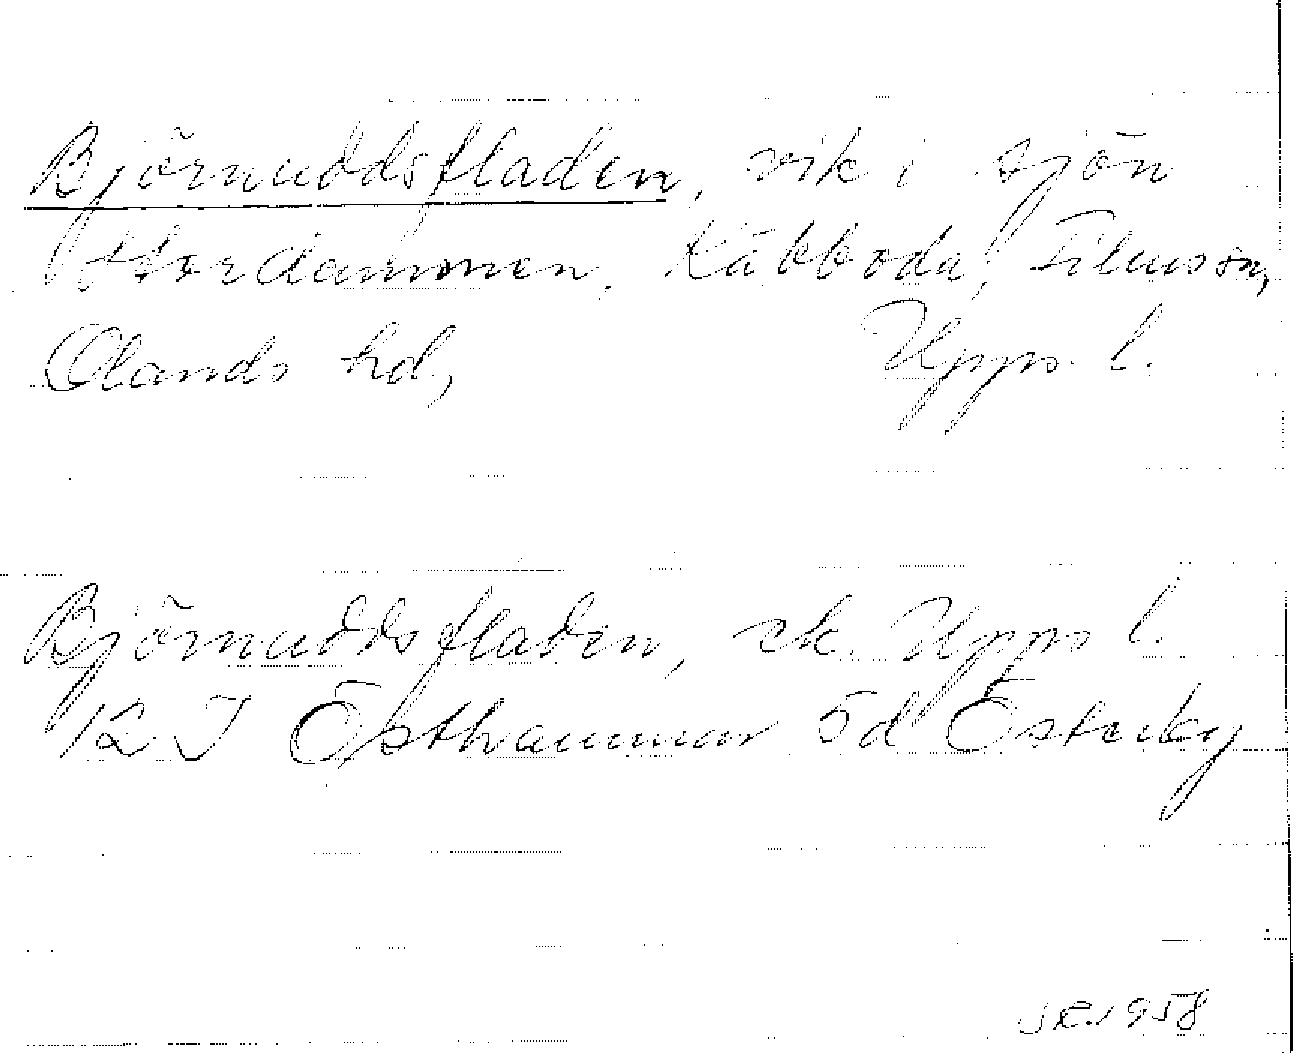 Björnuddsfladen, vik i sjön
Stordammen, Käbboda, Films sn,
Olands hd, Upps. l.
Björnuddsfladen, ek. Upps l.
12 I Östhammar 5d Österby
1958